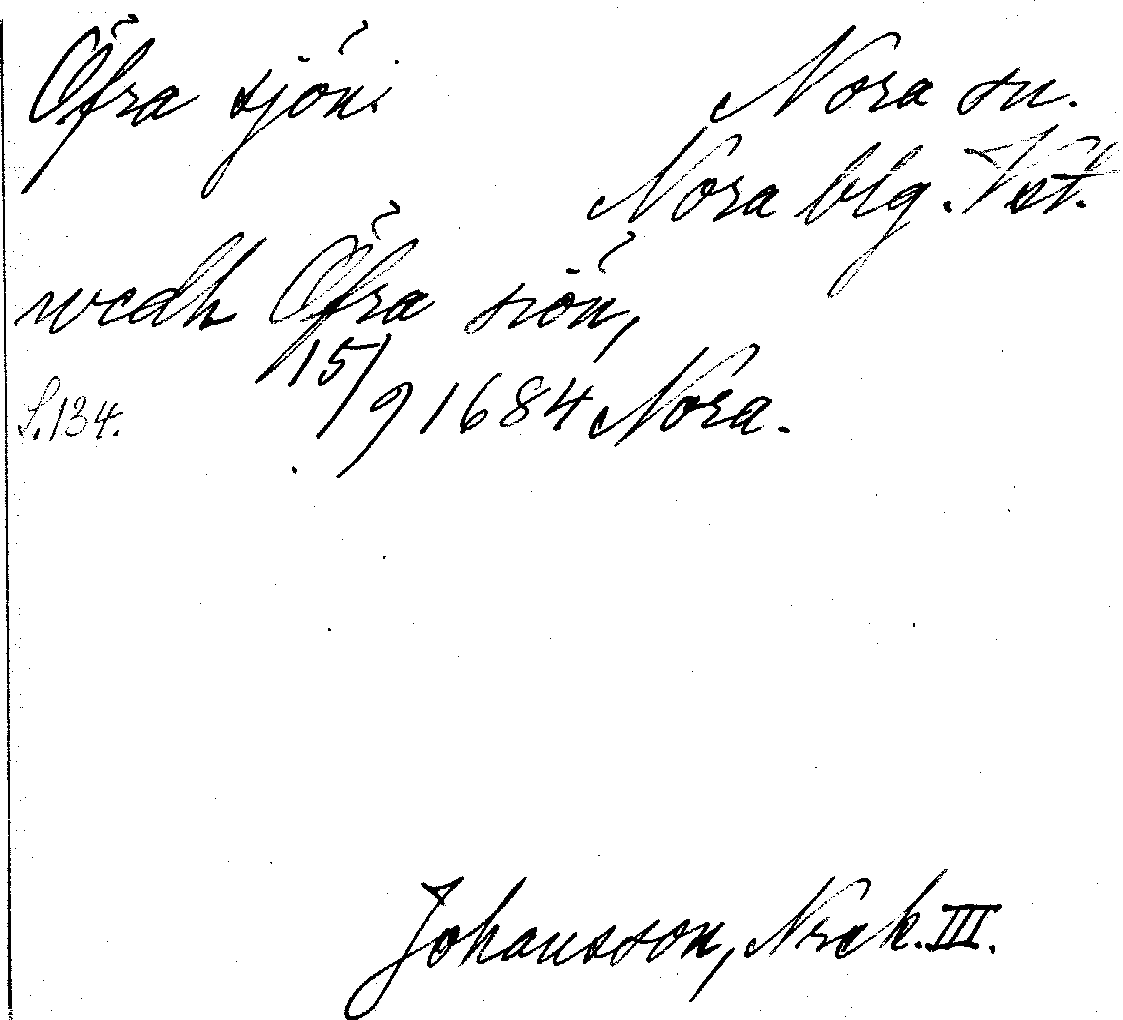 Öfra sjön. Nora sn.
Nora blg. Vst.
wedh Öfra siön,
S.134. 15/9 1684 Nora.
Johansson, Nrek. III.